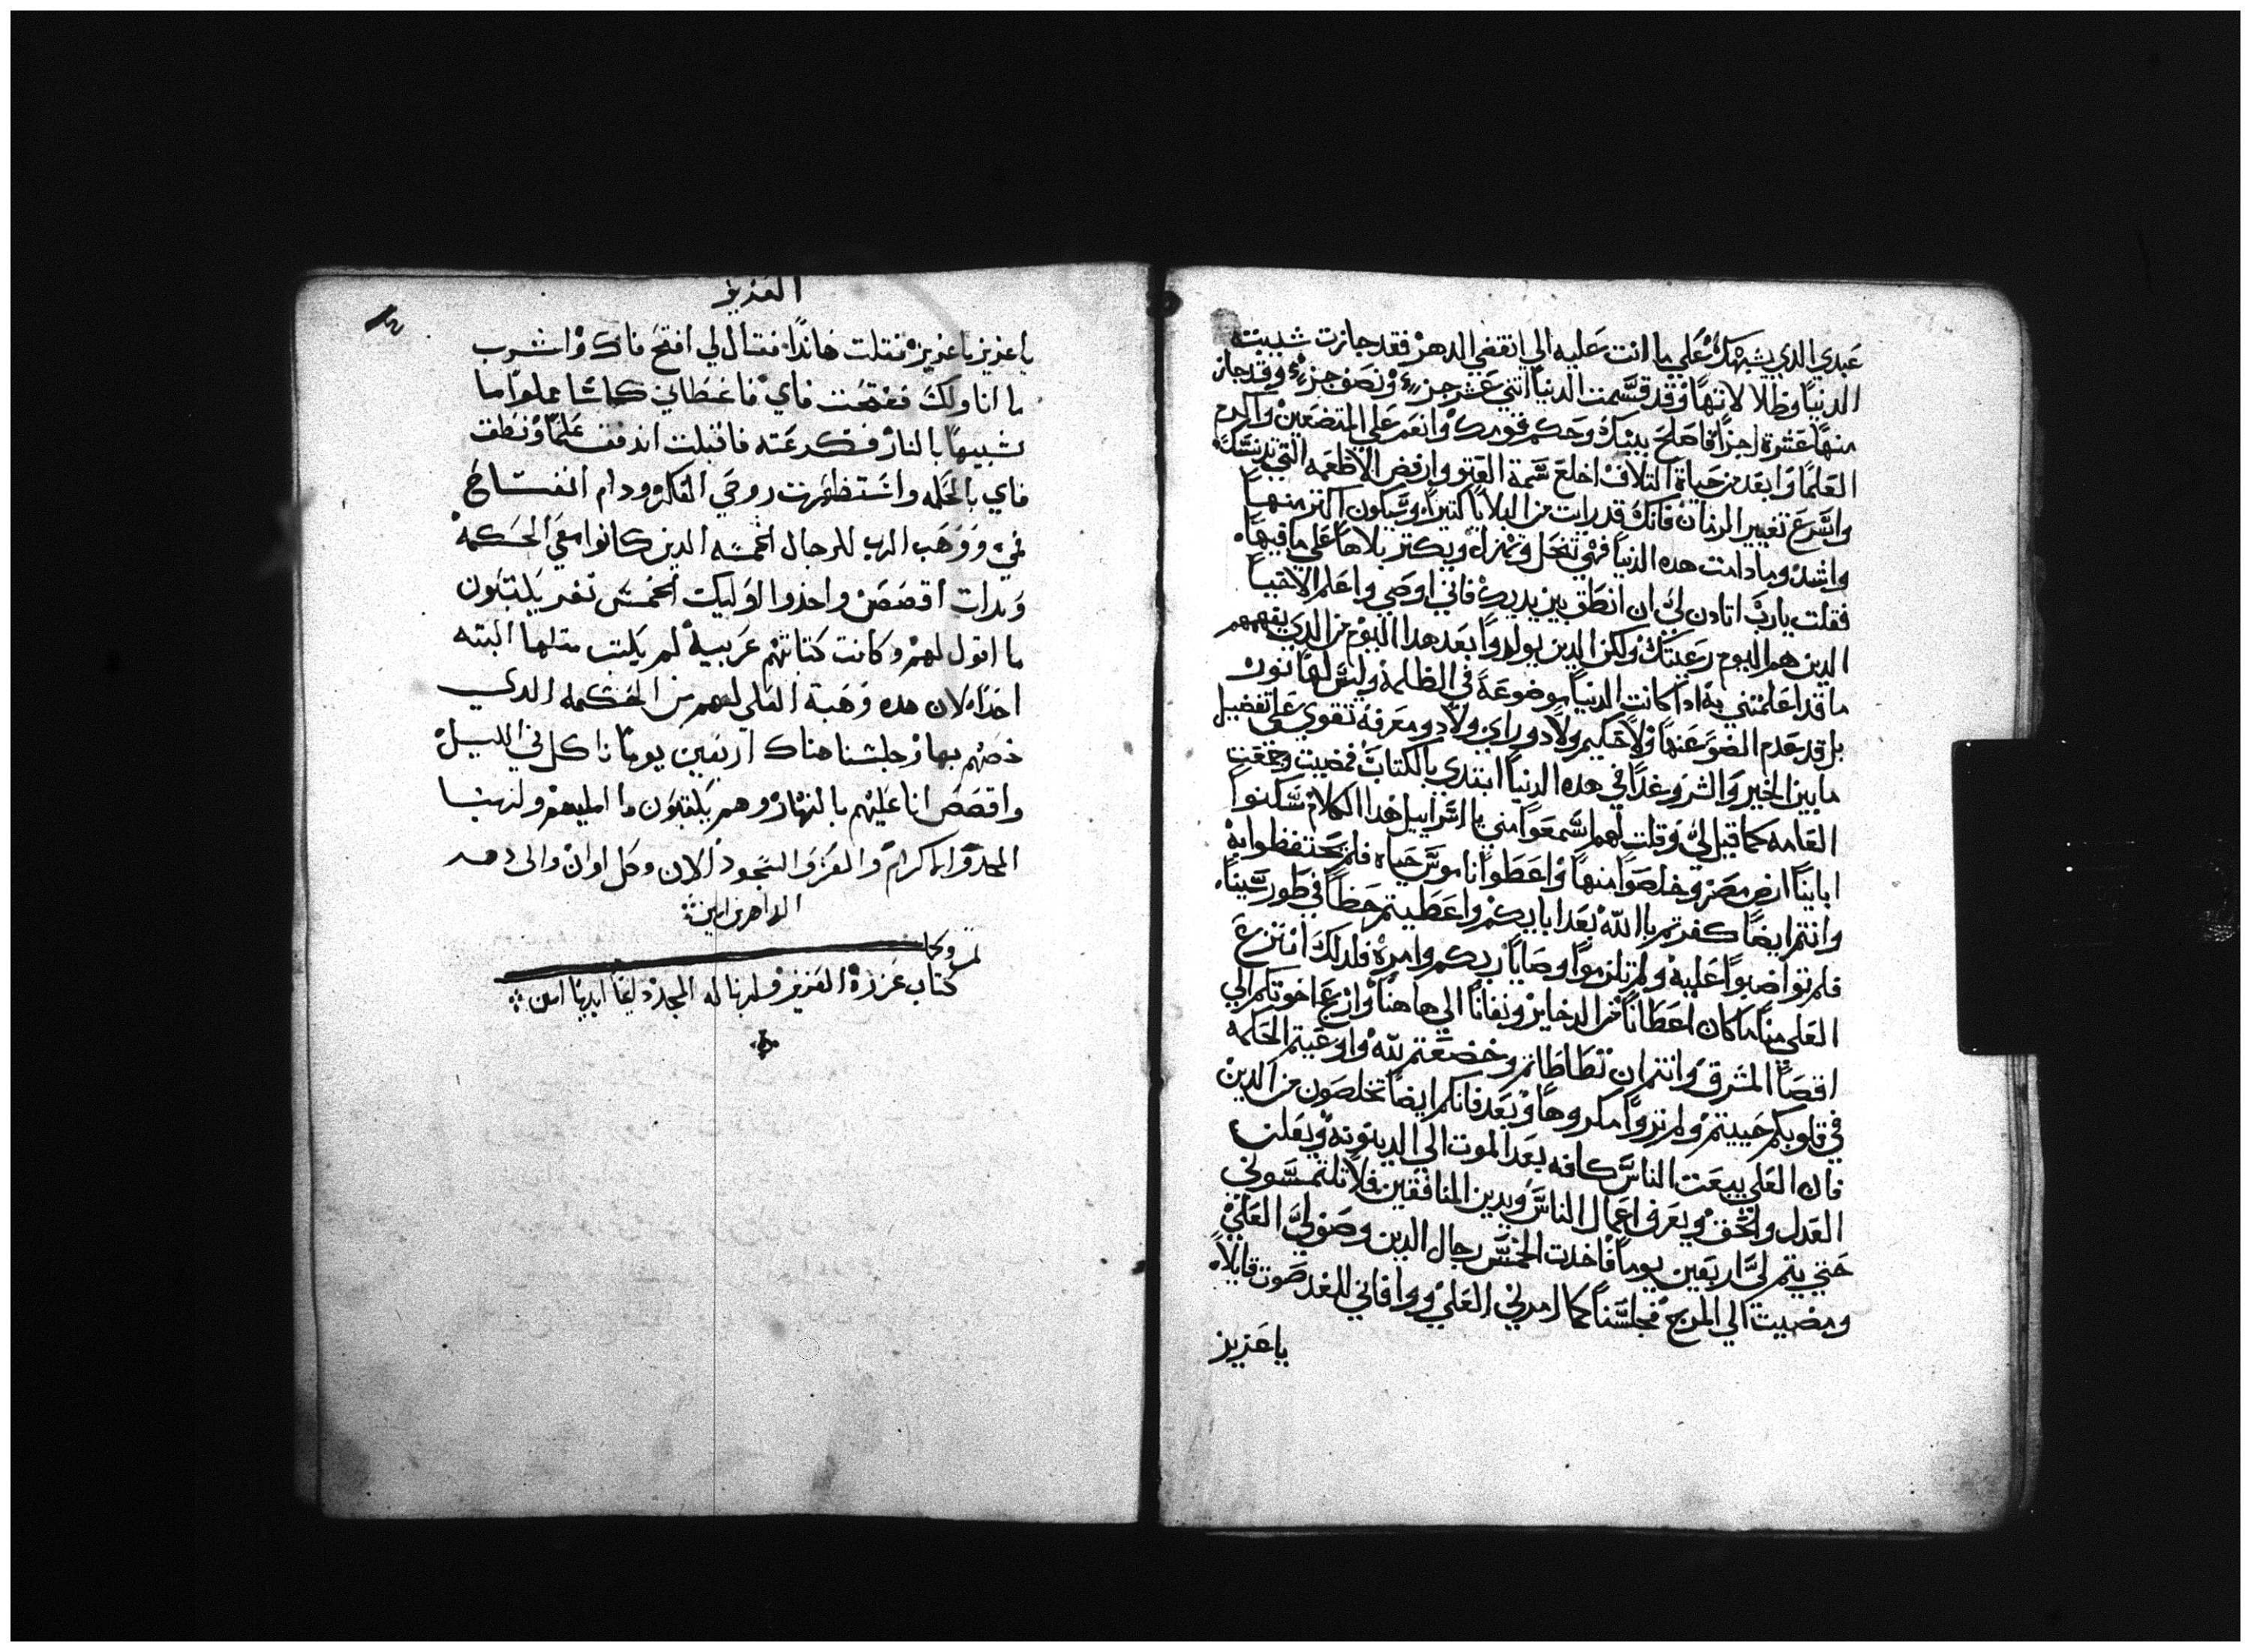 عبدي الدي يشبهك علي ما انت عليه الي انقضي الدهر فقد جازت شبيبته
الدنيا وظلالاتها وقد قسمت الدنيا اتني عشر جزء ونصف جزء وقد جاز
منها عشرة اجزا فاصلح بيتك وحكم قومك وانعم علي المتضعين واكرم
العلما وابعد من حياة التلاف اخلع سمة العتو وارفض الاطعمه التي
واسرع تغيير الزمان فانك قد رايت من البلايا كتيرا وسيكون اكتر منها
واشد وما دامت هده الدنيا فهي تنحل وتهزل ويكتر بلاها علي ما فيها
فقلت يارب اتادن لي ان انطق بين يديك فاني اوصي واعلم الاحيا
الدين هم اليوم رعيتك ولكن الدين يولدوا بعد هدا اليوم من الدي يفهمهم
ما قد اعلمتني به ادا كانت الدنيا موضوعة في الظلمة وليس لها نور
بل قد عدم الضو عنها ولا حكيم ولا دو راي ولا دو معرفة تقوي علي تفضيل
ما بين الخير والشر وغدا في هده الدنيا ابتدي بالكتاب فمضيت وجمعت
العامه كما قيل لي وقلت لهم اسمعوا مني يا اسراييل هدا الكلام سكنوا
ابانيا ارض مصر وخلصوا منها واعطوا ناموس حياه فلم يحتفظوا به
وانتم ايضا كفرتم بالله بعد ابايكم واعطيتم حظا في طور سينا
فلم تواضبوا عليه ولم تلزموا وصايا ربكم وامره فلدلك انتزع
العلي منا ما كان اعطانا من الدخاير ونفانا الي هاهنا وازعج اخوتكم الي
اقصا المشرق وانتم ان تطاطاتم وخضعتم لله واوعيتم الحكمه
في قلوبكم حييتم ولم تروا مكروها وبعد فانكم ايضا تخلصون من الدين
فان العلي يبعت الناس كافه بعد الموت الي الدينونه ويعلن
العدل والحق ويعرف اعمال الناس ويدين المنافقين فلا تلتمسوني
حتي يتم لي اربعين يوما فاخدت الخمس رجال الدين وصفوالي العلي
ومضيت الي المرج فجلسنا كما امرني العلي ووافاني للغد صوت قايلا
ياعزيز
العزيز
ياعزيز ياعزيز فقلت هاندا فقال لي افتح فاك واشرب
ما اناولك ففتحت فاي فاعطاني كاسا مملوا ما
شبيها بالنار فكرعته فاقبلت اندفق علما ونطق
فاي بالحكمه واستظهرت روحي الفكر ودام انفساخ
في ووهب الرب للرجال الخمسه الدين كانوا معي الحكمة
وبدات اقصص واخدوا اوليك الخمس نفر يكتبون
ما اقول لهم وكانت كتابتهم غريبية لم يكتب متلها البته
احدا لان هده وهبة العلي لهم من الحكمه الدي
خصهم بها وجلسنا هناك اربعين يوما ناكل في الليل
واقصص انا عليهم بالنهار وهم يكتبون ما امليهم ولربنا
المجد والاكرام والعز والسجود الان وكل اوان والى دهر
الداهرين امين
تم وكمل
كتاب عزره العزيز ولربنا له المجد دايما ابديا امين